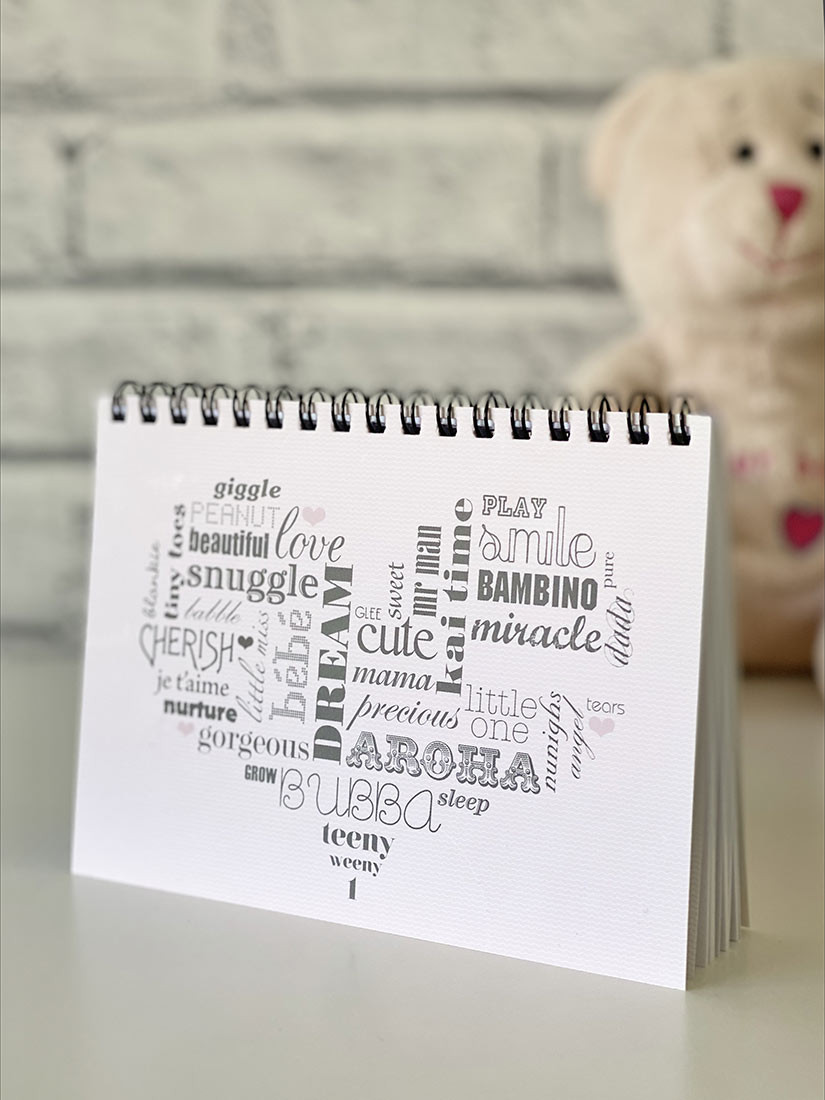 giggle
PEANUT
love
beautiful
tiny toes
blankie
snuggle
babble
CHERISH
little miss
bébé
DREAM
je t'aime
nurture
gorgeous
GROW
BUBBA
sleep
teeny
weeny
1
PLAY
smile
pure
BAMBINO
miracle
dada
kai time
mr man
sweet
GLEE
cute
mama
precious
little
one
AROHA
numighs
angel
tears